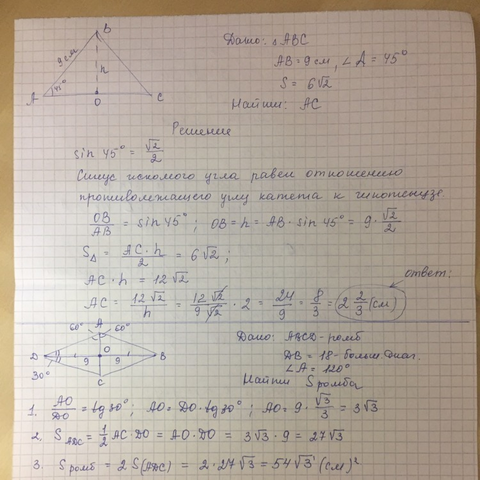 B
9 см
h
A
45°
O
C
Дано: △ABC
AB = 9 см, ∠A = 45°
S = 6√2
Найти: AC
Решение
sin 45° = √2/2
Синус искомого угла равен отношению
противолежащего углу катета к гипотенузе
OB/AB = sin 45°; OB = h = AB · sin 45° = 9 · √2/2
S△ = AC · h/2 = 6√2;
AC · h = 12√2
ответ:
AC = 12√2/h = 12√2/9√2 · 2 = 24/9 = 8/3 = 2 2/3 (см)
A
60° 60°
D O B
9 9
30°
C
Дано: ABCD - ромб
DB = 18 - больш. диаг.
∠A = 120°
Найти Sромба
1. AO/DO = tg 30°; AO = DO · tg 30°; AO = 9 · √3/3 = 3√3
2. SADC = 1/2 AC · DO = AO · DO = 3√3 · 9 = 27√3
3. Sромб = 2 S(ADC) = 2 · 27√3 = 54√3 (см)²